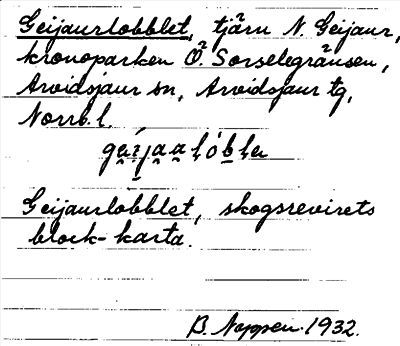 Geijaurlobblet, tjärn N. Geijaur,
kronoparken Ö. Sorselegränsen,
Arvidsjaur sn, Arvidsjaur tg,
Norrb. l.
Geijaurlobblet, skogsrevirets
block-karta.
B. Noppen 1932.